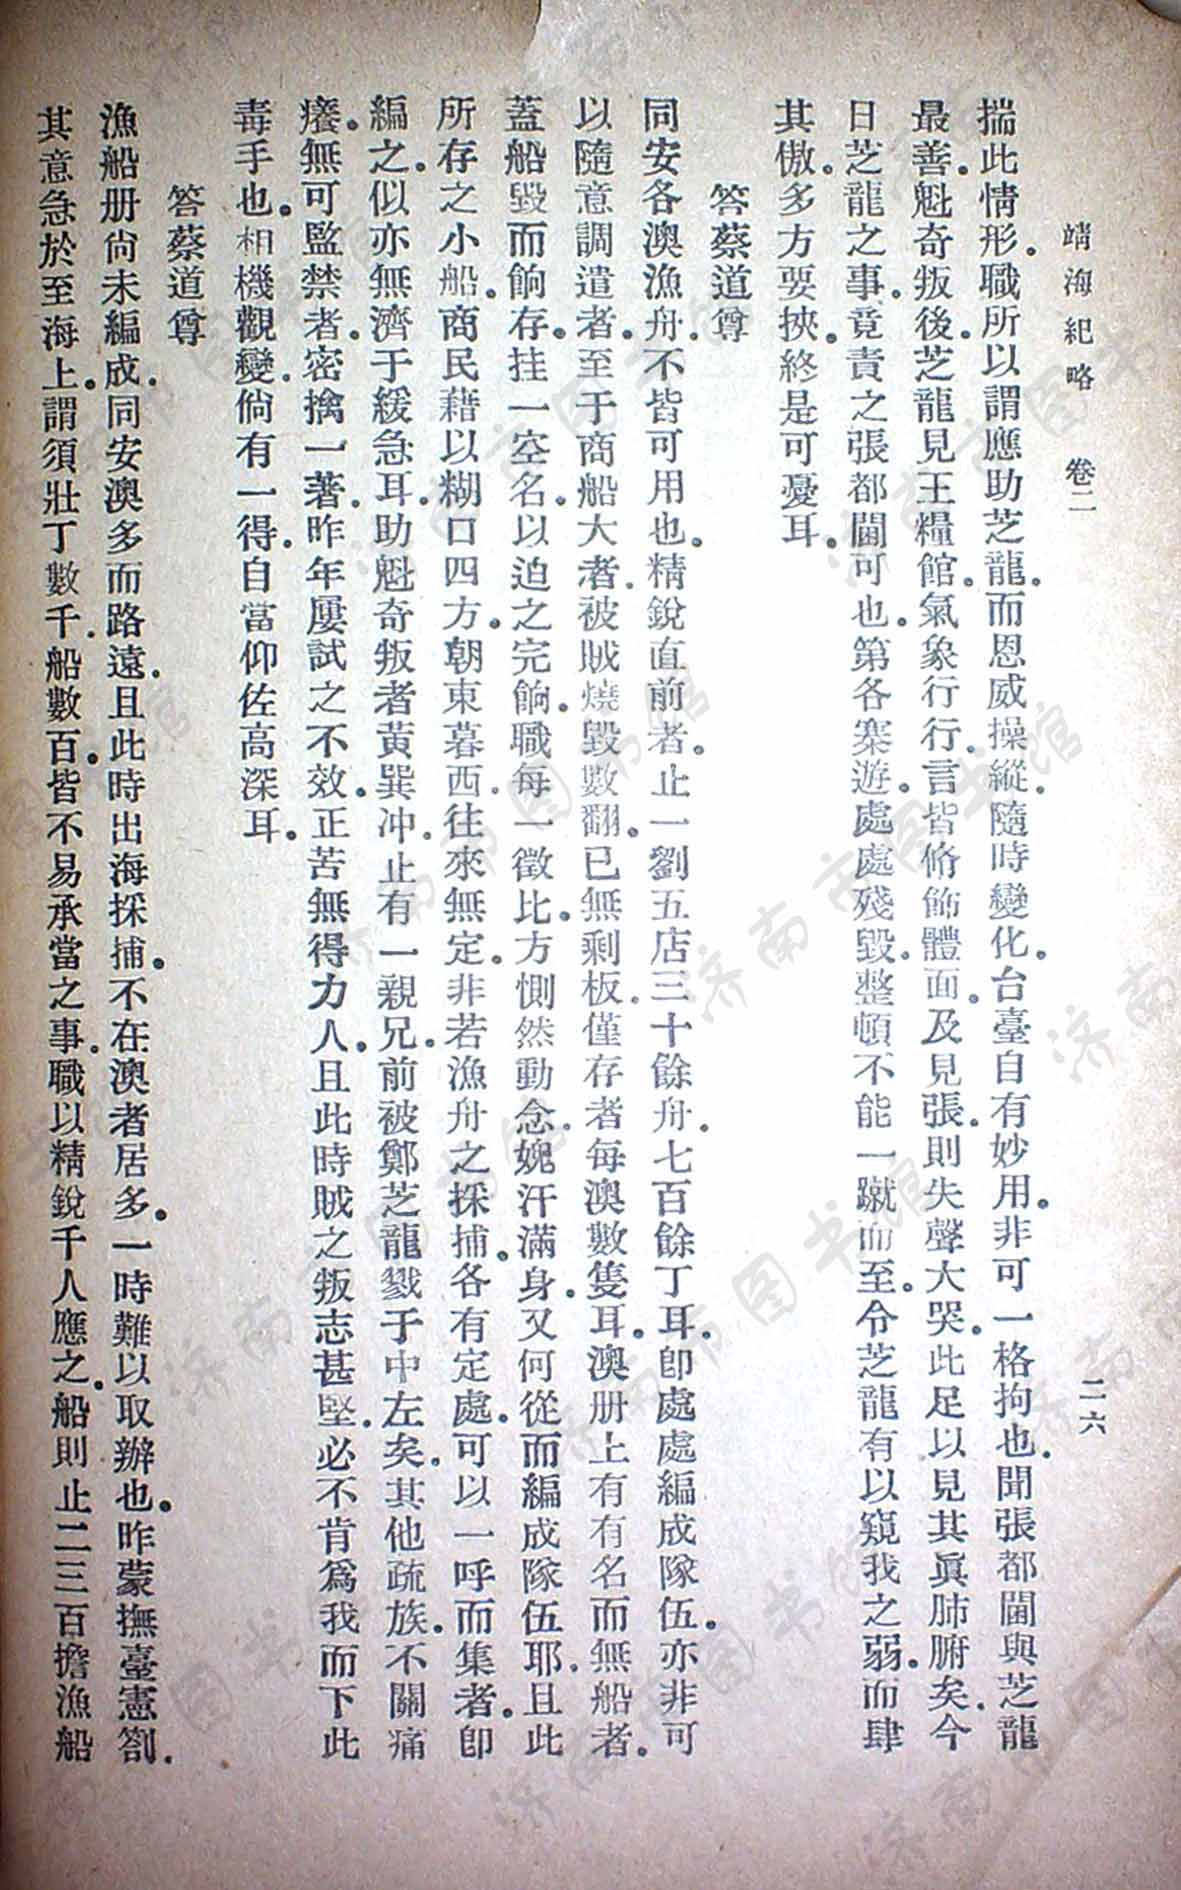 靖海紀略　卷二　二六
揣此情形。職所以謂應助芝龍。而恩威操縱。隨時變化。台臺自有妙用。非可一格拘也。聞張都閫與芝龍
最善。魁奇叛後。芝龍見王糧館。氣象行行。言皆脩飾體面。及見張。則失聲大哭。此足以見其眞肺腑矣。今
日芝龍之事。竟責之張都閫可也。第各寨遊。處處殘毀。整頓不能一蹴而至。令芝龍有以窺我之弱。而肆
其傲。多方要挾。終是可憂耳。
答蔡道尊
同安各澳漁舟。不皆可用也。精銳直前者。止一劉五店三十餘舟。七百餘丁耳。卽處處編成隊伍。亦非可
以隨意調遣者。至于商船大者。被賊燒毀數翻。已無剩板。僅存者每澳數隻耳。澳册上有有名而無船者。
蓋船毀而餉存。挂一空名。以迫之完餉。職每一徵比。方惻然動念。媿汗滿身。又何從而編成隊伍耶。且此
所存之小船。商民藉以糊口四方。朝東暮西。往來無定。非若漁舟之採捕。各有定處。可以一呼而集者。卽
編之。似亦無濟于緩急耳。助魁奇叛者黃巽冲。止有一親兄。前被鄭芝龍戮于中左矣。其他疏族。不關痛
癢。無可監禁者。密擒一著。昨年屢試之不效。正苦無得力人。且此時賊之叛志甚堅。必不肯爲我而下此
毒手也。相機觀變。倘有一得。自當仰佐高深耳。
答蔡道尊
漁船册尙未編成。同安澳多而路遠。且此時出海採捕。不在澳者居多。一時難以取辦也。昨蒙撫臺憲劄。
其意急於至海上。謂須壯丁數千。船數百。皆不易承當之事。職以精銳千人應之。船則止二三百擔漁船